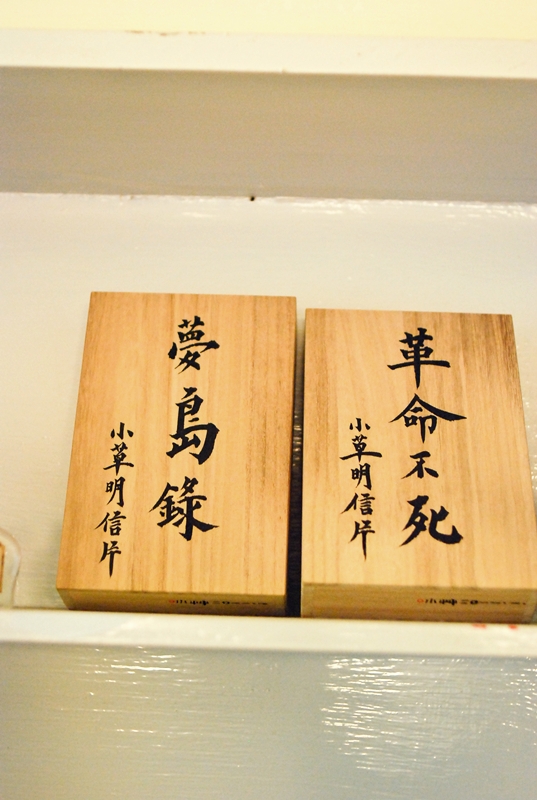 夢島錄
小草明信片
革命不死
小草明信片
小艸
小艸